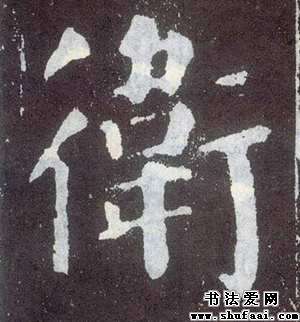 衛
书法爱网
www.shufaai.com